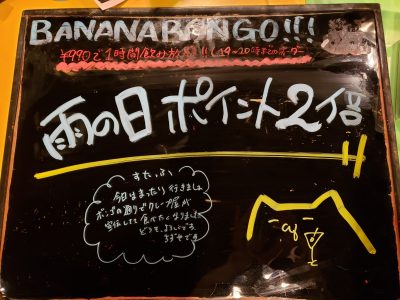 BANANABONGO!!!
¥990で1時間飲み放題!! 19~20時までのオーダー
雨の日ポイント2倍
すたっふ
今日はまったり行きましょ
ボンゴの通りでクレープ屋が
宣伝してて食べたくなりました
どうぞ、よろしくです